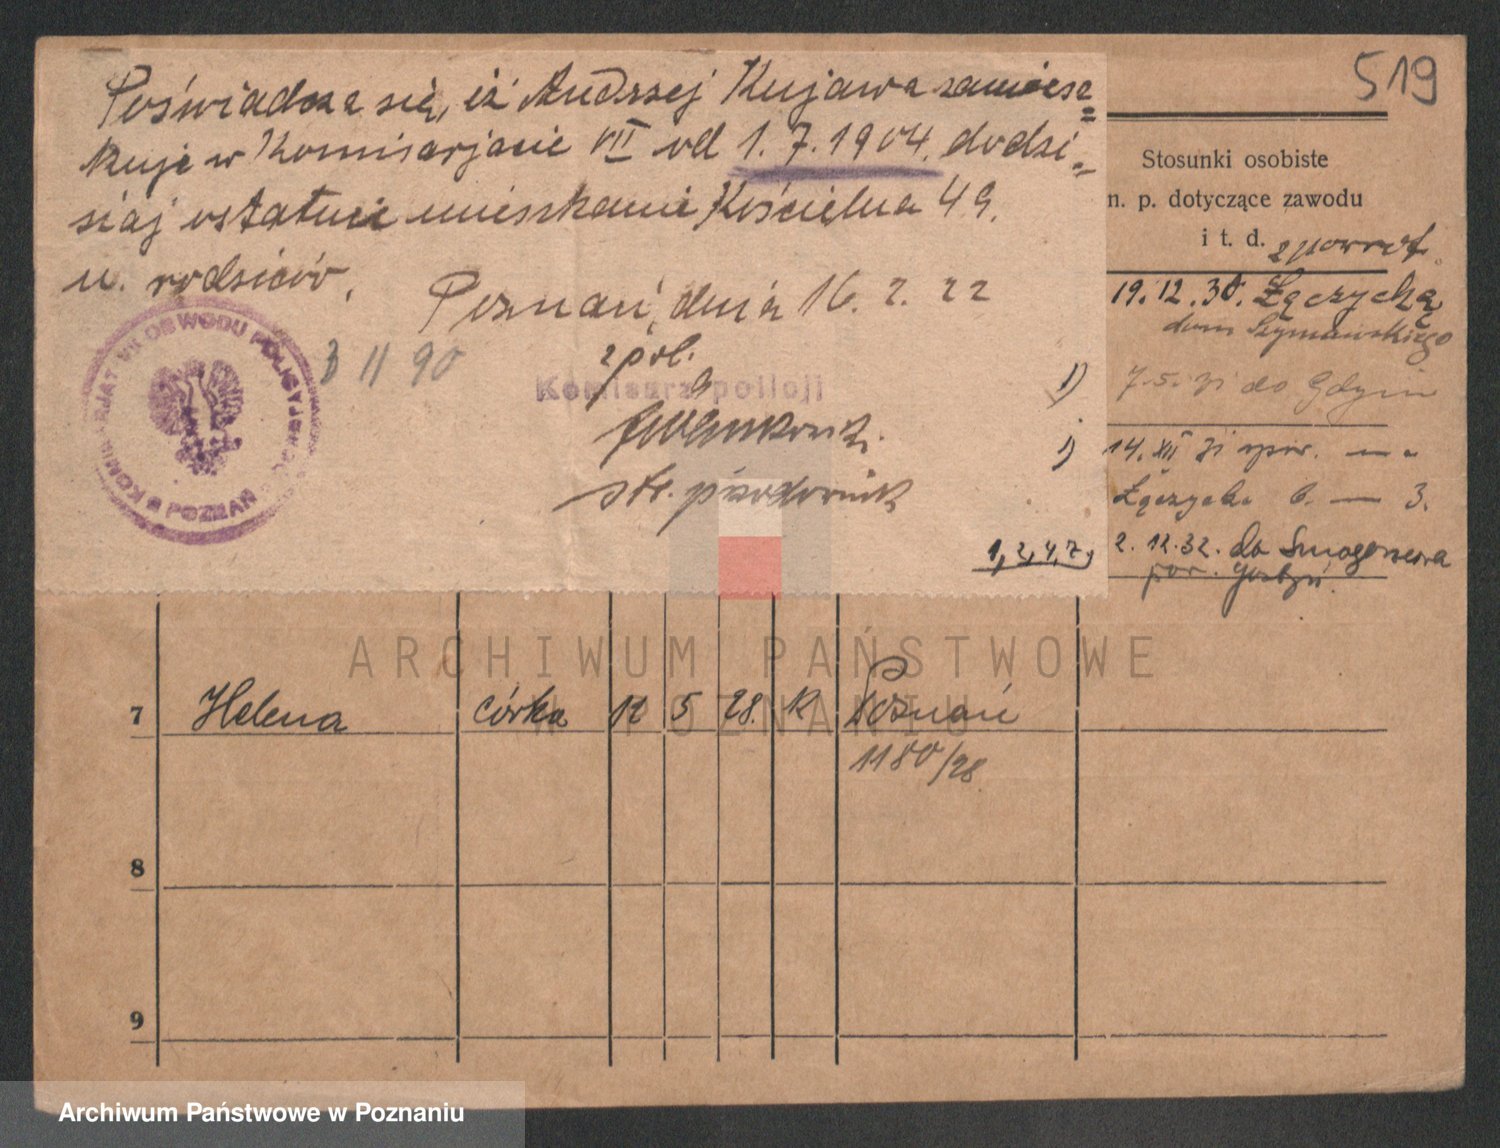 519
Poświadcza się, iż Andrzej Kujawa zamiesz=
kuje w Komisarjacie VII od 1.7.1904. do dzi=
siaj ostatnie mieszkanie Kościelna 49.
u. rodziców.
Poznań, dnia 16.2.22
KOMISARJAT VII OBWODU POLICYJNEGO POZNAŃ
3 11 90
z pol.
Komisarz policji
st. przodownik
1, 2, 4, 7,
Stosunki osobiste
n. p. dotyczące zawodu
i t. d.
z powrot.
19.12.30. Łęczycką
dom Szymańskiego
1) 7.5.31 do Gdyni
1) 14.XII 31 spow. — „
Łęczycka 6. — 3.
2.12.32. do Smogorzewa
pow. Gostyń.
7 Helena córka 12 5 28. K Poznań
1180/28
8
9
ARCHIWUM PAŃSTWOWE
W POZNANIU
Archiwum Państwowe w Poznaniu